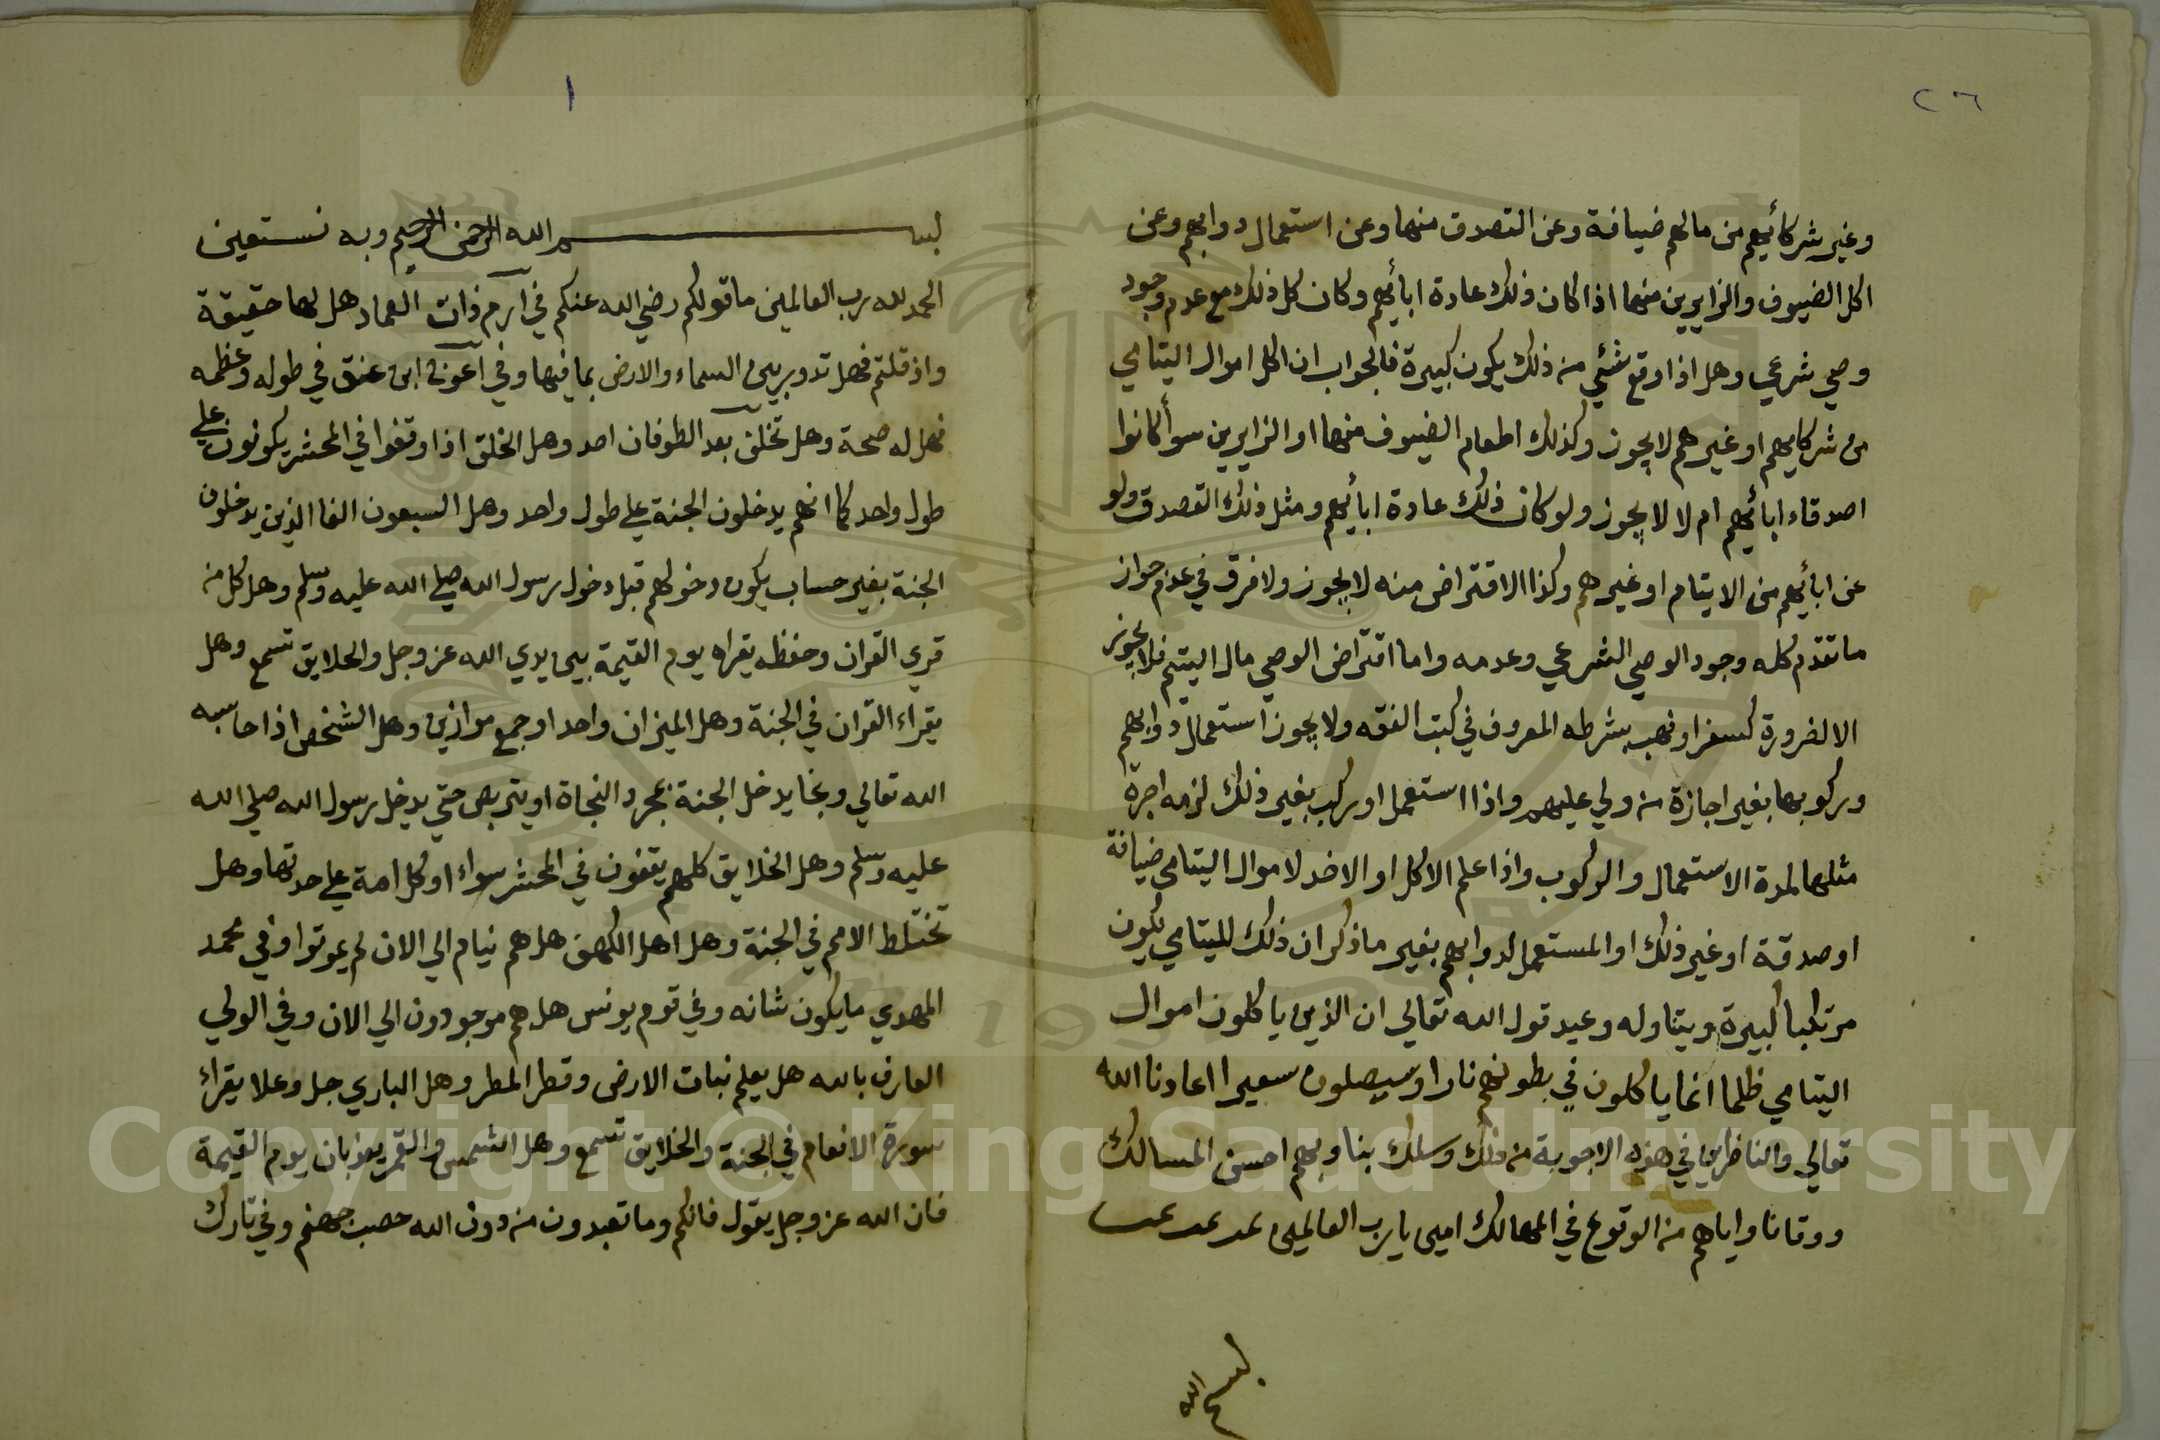 ٢٦
وغير شركائهم من مالهم ضيافة وعن التصدق منها وعن استعمال دوابهم وعن
اكل الضيوف والزايرين منها اذا كان ذلك عادة ابائهم وكان كل ذلك مع عدم وجود
وصي شرعي وهل اذا وقع شئي من ذلك يكون كبيرة فالجواب ان اكل اموال اليتامي
من شركايهم او غيرهم لا يجوز وكذلك اطعام الضيوف منها او الزايرين سوأ كانوا
اصدقاء ابائهم ام لا لا يجوز ولو كان ذلك عادة ابائهم ومثل ذلك التصدق ولو
عن ابائهم من الايتام او غيرهم وكذا الاقتراض منه لا يجوز ولا فرق في عدم جواز
ما تقدم كله وجود الوصي الشرعي وعدمه واما اقتراض الوصي مال اليتيم فلا يجوز
الا لضرورة كسفر او نهب بشرطه المعروف في كتب الفقه ولا يجوز استعمال دوابهم
وركوبها بغير اجازة من ولي عليهم واذا استعمل او ركب بغير ذلك لزمه اجرة
مثلها لمدة الاستعمال والركوب واذا علم الاكل او الاخذ لاموال اليتامي ضيافة
او صدقة او غير ذلك او المستعمل لدوابهم بغير ما ذكر ان ذلك لليتامي يكون
مرتكبا كبيرة ويتناوله وعيد قول الله تعالي ان الذين ياكلون اموال
اليتامي ظلما انما ياكلون في بطونهم نارا وسيصلون سعيرا اعاذنا الله
تعالي والناظرين في هذه الاجوبة من ذلك وسلك بنا وبهم احسن المسالك
ووقانا واياهم من الوقوع في المهالك امين يا رب العالمين
بسم الله
١
بسم الله الرحمن الرحيم وبه نستعين
الحمد لله رب العالمين ما قولكم رضي الله عنكم في ارم ذات العماد هل لها حقيقة
واذ قلتم فهل تدور بين السماء والارض بما فيها وفي اعوج ابن عنق في طوله وعظمه
فهل له صحة وهل تخلف بعد الطوفان احد وهل الخلق اذا وقفوا في المحشر يكونون علي
طول واحد كما انهم يدخلون الجنة علي طول واحد وهل السبعون الفا الذين يدخلون
الجنة بغير حساب يكون دخولهم قبل دخول رسول الله صلي الله عليه وسلم وهل كل من
قري القران وحفظه يقراه يوم القيمة بين يدي الله عز وجل والخلايق تسمع وهل
يقراء القران في الجنة وهل الميزان واحد او جمع موازين وهل الشخص اذا حاسبه
الله تعالي ونجا يدخل الجنة بمجرد النجاة او يتربص حتي يدخل رسول الله صلي الله
عليه وسلم وهل الخلايق كلهم يقفون في المحشر سواء او كل امة علي حدتها وهل
تختلط الامم في الجنة وهل اهل الكهف هل هم نيام الي الان لم يموتوا وفي محمد
المهدي ما يكون شانه وفي قوم يونس هل هم موجودون الي الان وفي الولي
العارف بالله هل يعلم نبات الارض وقطر المطر وهل الباري جل وعلا يقراء
سورة الانعام في الجنة والخلايق تسمع وهل الشمس والقمر يعذبان يوم القيمة
فان الله عز وجل يقول فانكم وما تعبدون من دون الله حصب جهنم وفي تارك
Copyright © King Saud University
1957